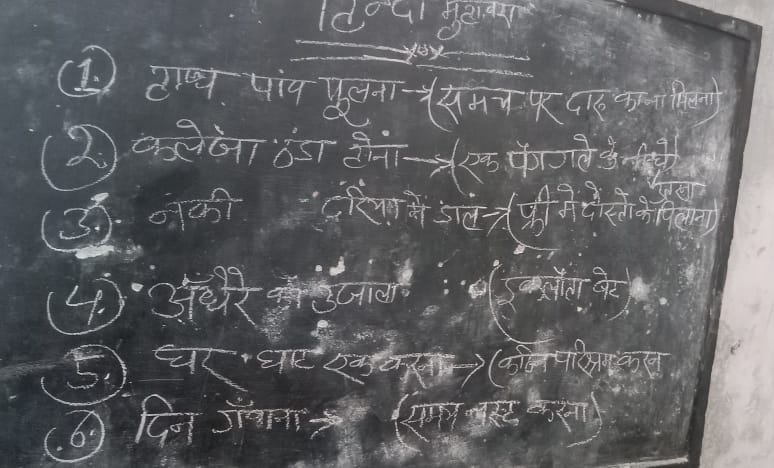 हिन्दी मुहावरा
1. हाथ पांव फूलना → (समय पर दारु का ना मिलना)
2. कलेजा ठंडा होना → (एक पैग गले के नीचे
3. नेकी दरिया में डाल → (फ्री मे दोस्तो को पिलाना)
4. अँधेरे का उजाला (इकलौता बेटा)
5. घर घाट एक करना → (कठिन परिश्रम करना
6. दिन गँवाना → (समय नस्ट करना)